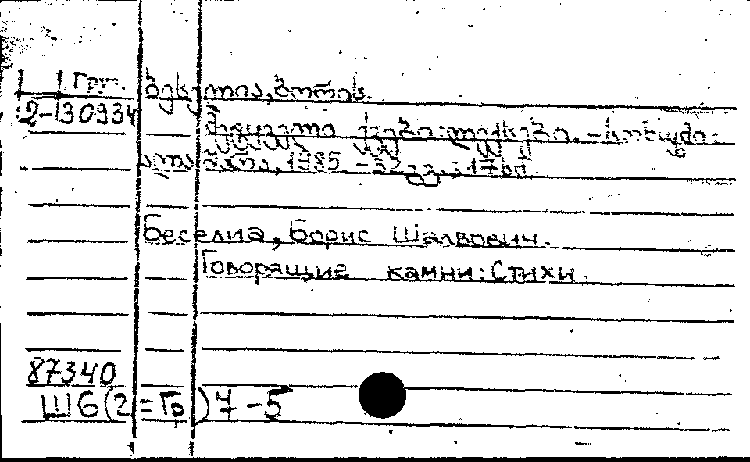 Груз. ბესელია, ბორის.
2-30934
მეტყველი ქვები: ლექსები. - სოხუმი:
ალაშარა, 1985. - 52 გვ.; 17 სმ.
Беселиа, Борис Шалвович.
Говорящие камни: Стихи.
87340
Ш6(2=Гр)7-5